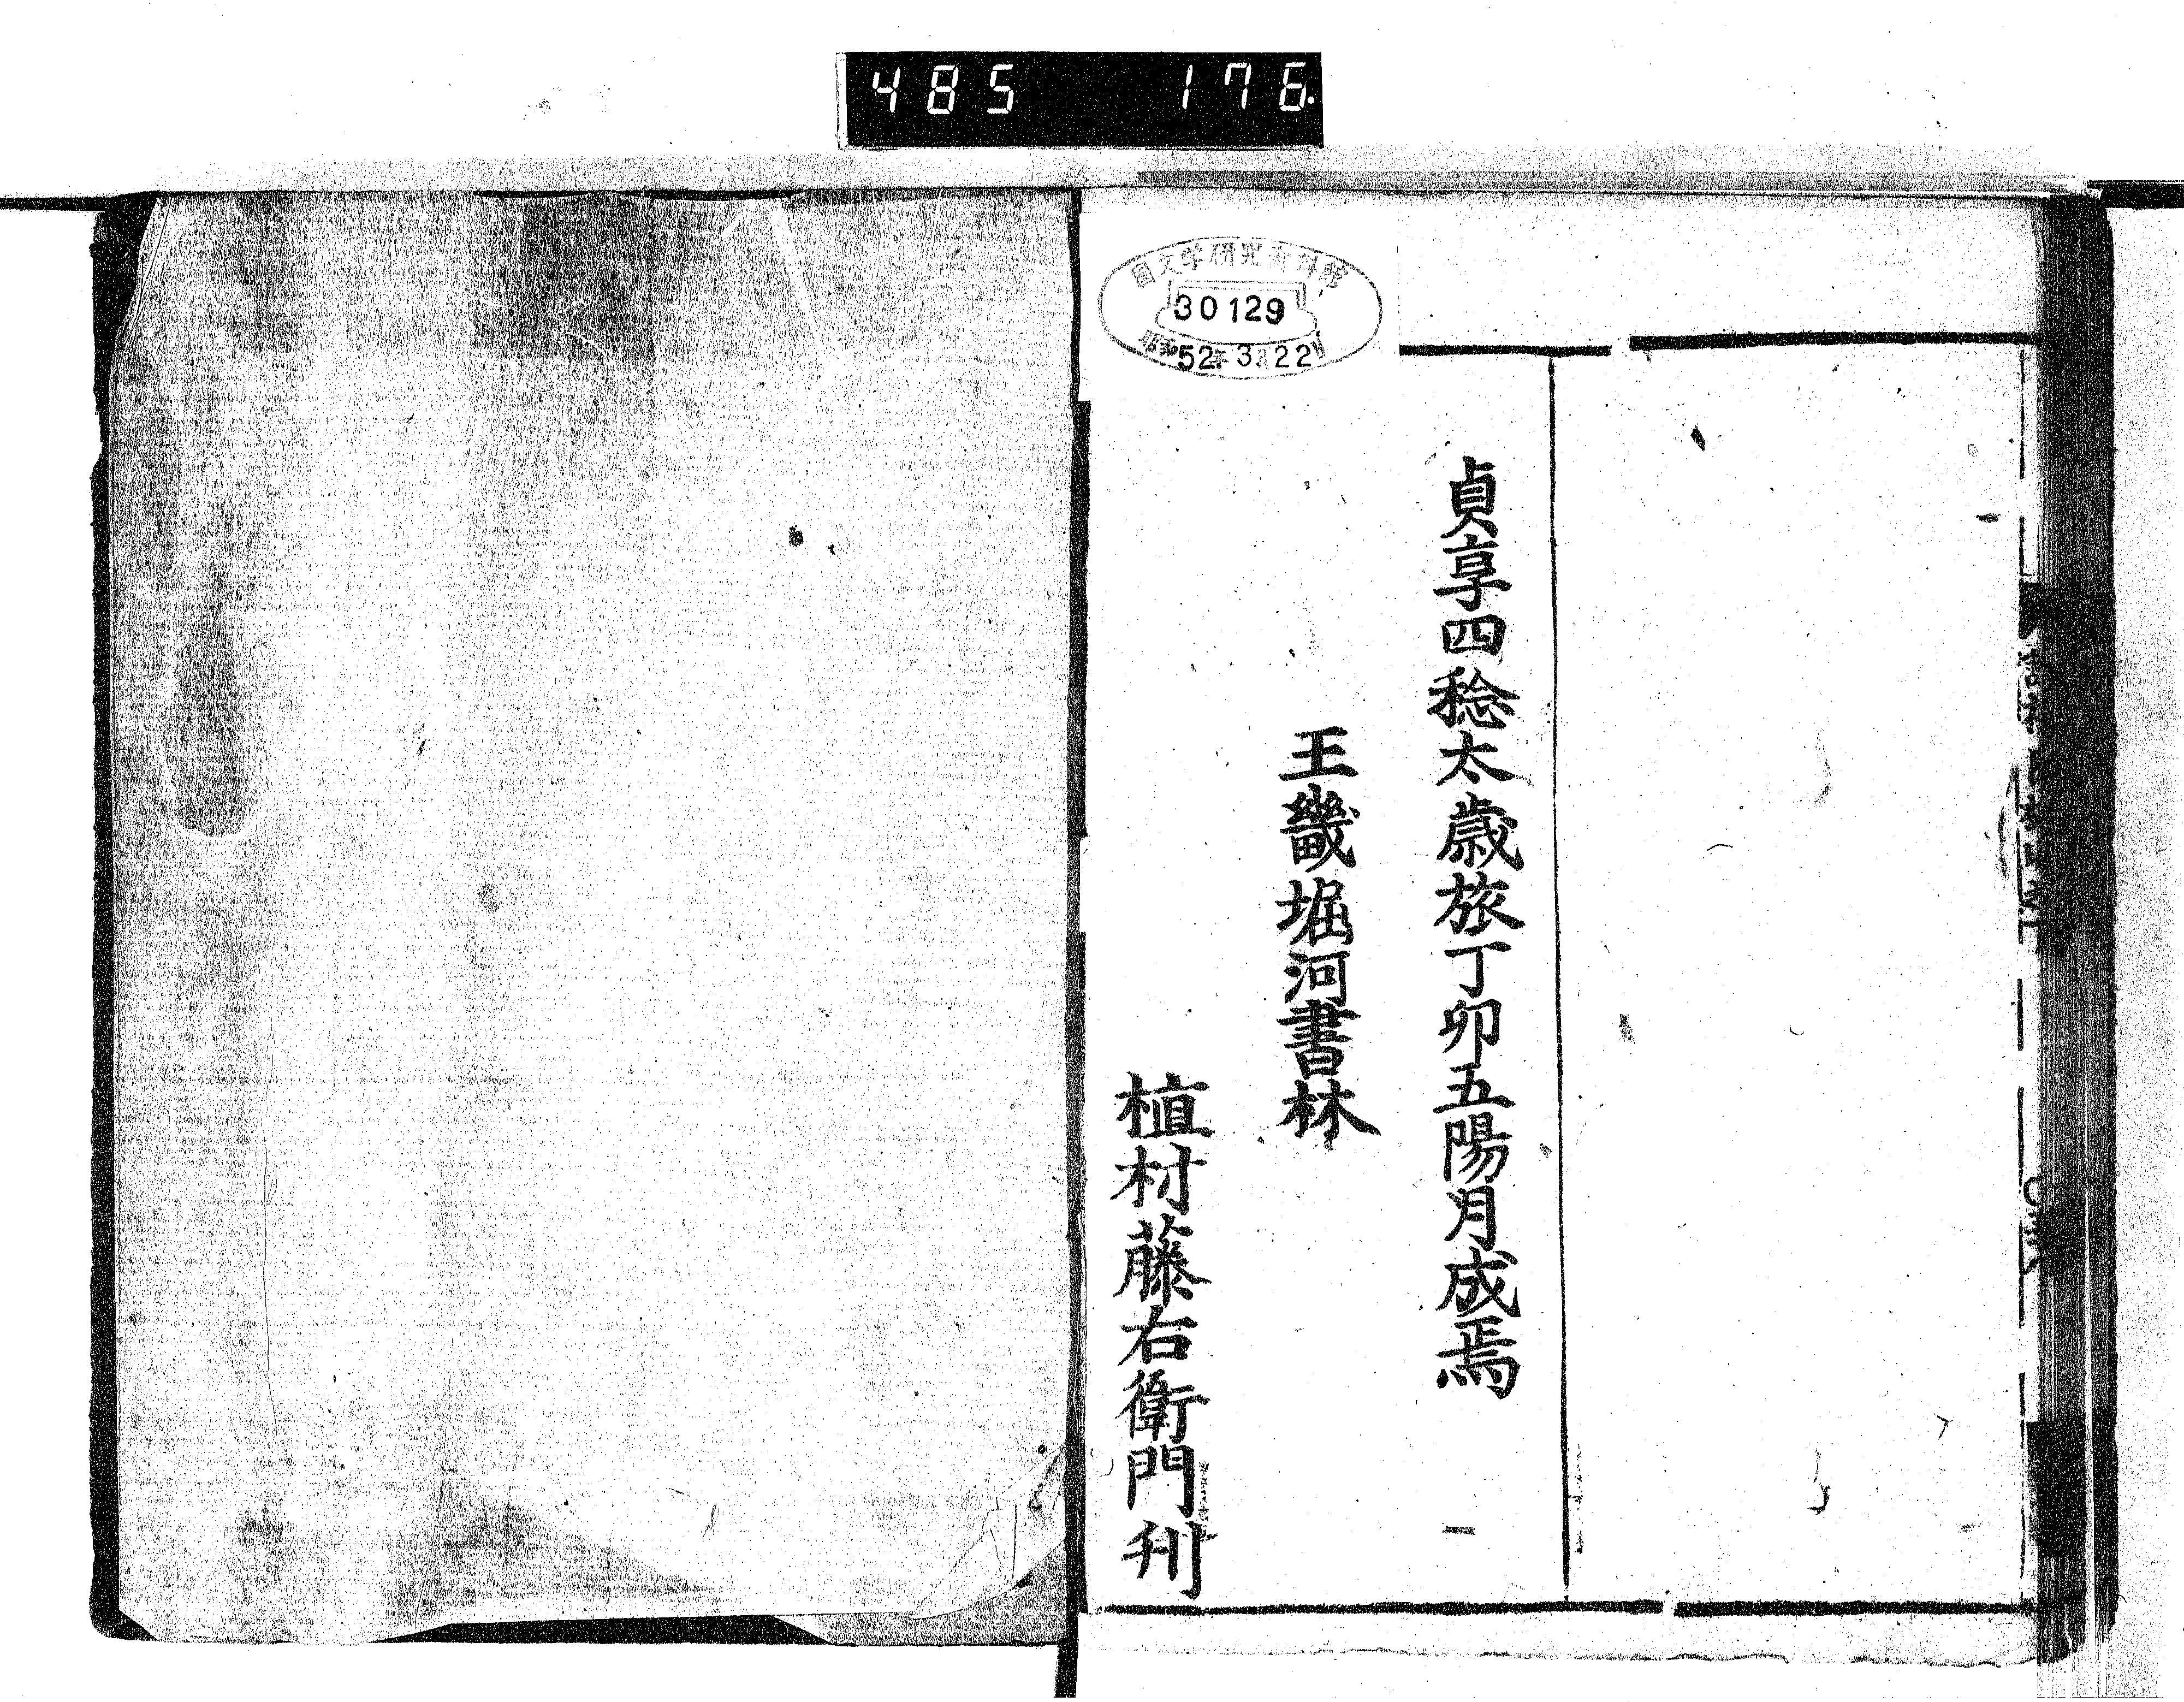 485 176
國文学研究資料館
30129
昭和52年3月22日
貞享四稔太歳旅丁卯五陽月成焉
王畿堀河書林
植村藤右衛門刊